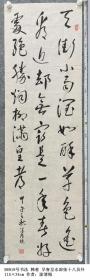 天街小雨润如酥草色遥
看近却无最是一年春好
处绝胜烟柳满皇都
书法 韩愈 早春呈水部张十八员外
116×34cm 作者: